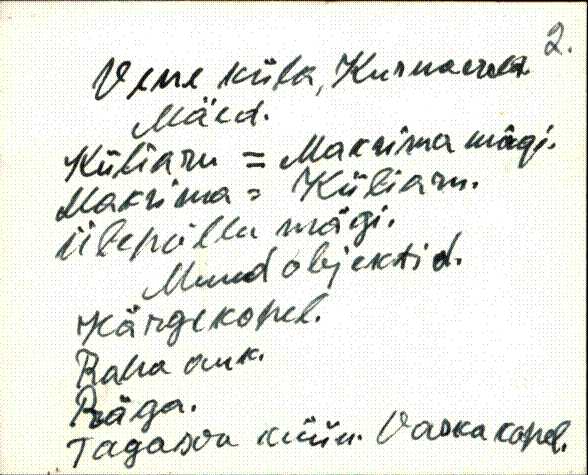 2.
Vene küla, 
Mäed.
Küliaru = Maksima mägi.
Maksima = Küliaru.
Ülepõllu mägi.
Muud objektid.
Kärgekopel.
Raha auk.
Räga.
Tagasoo küün. Vaska kopel.